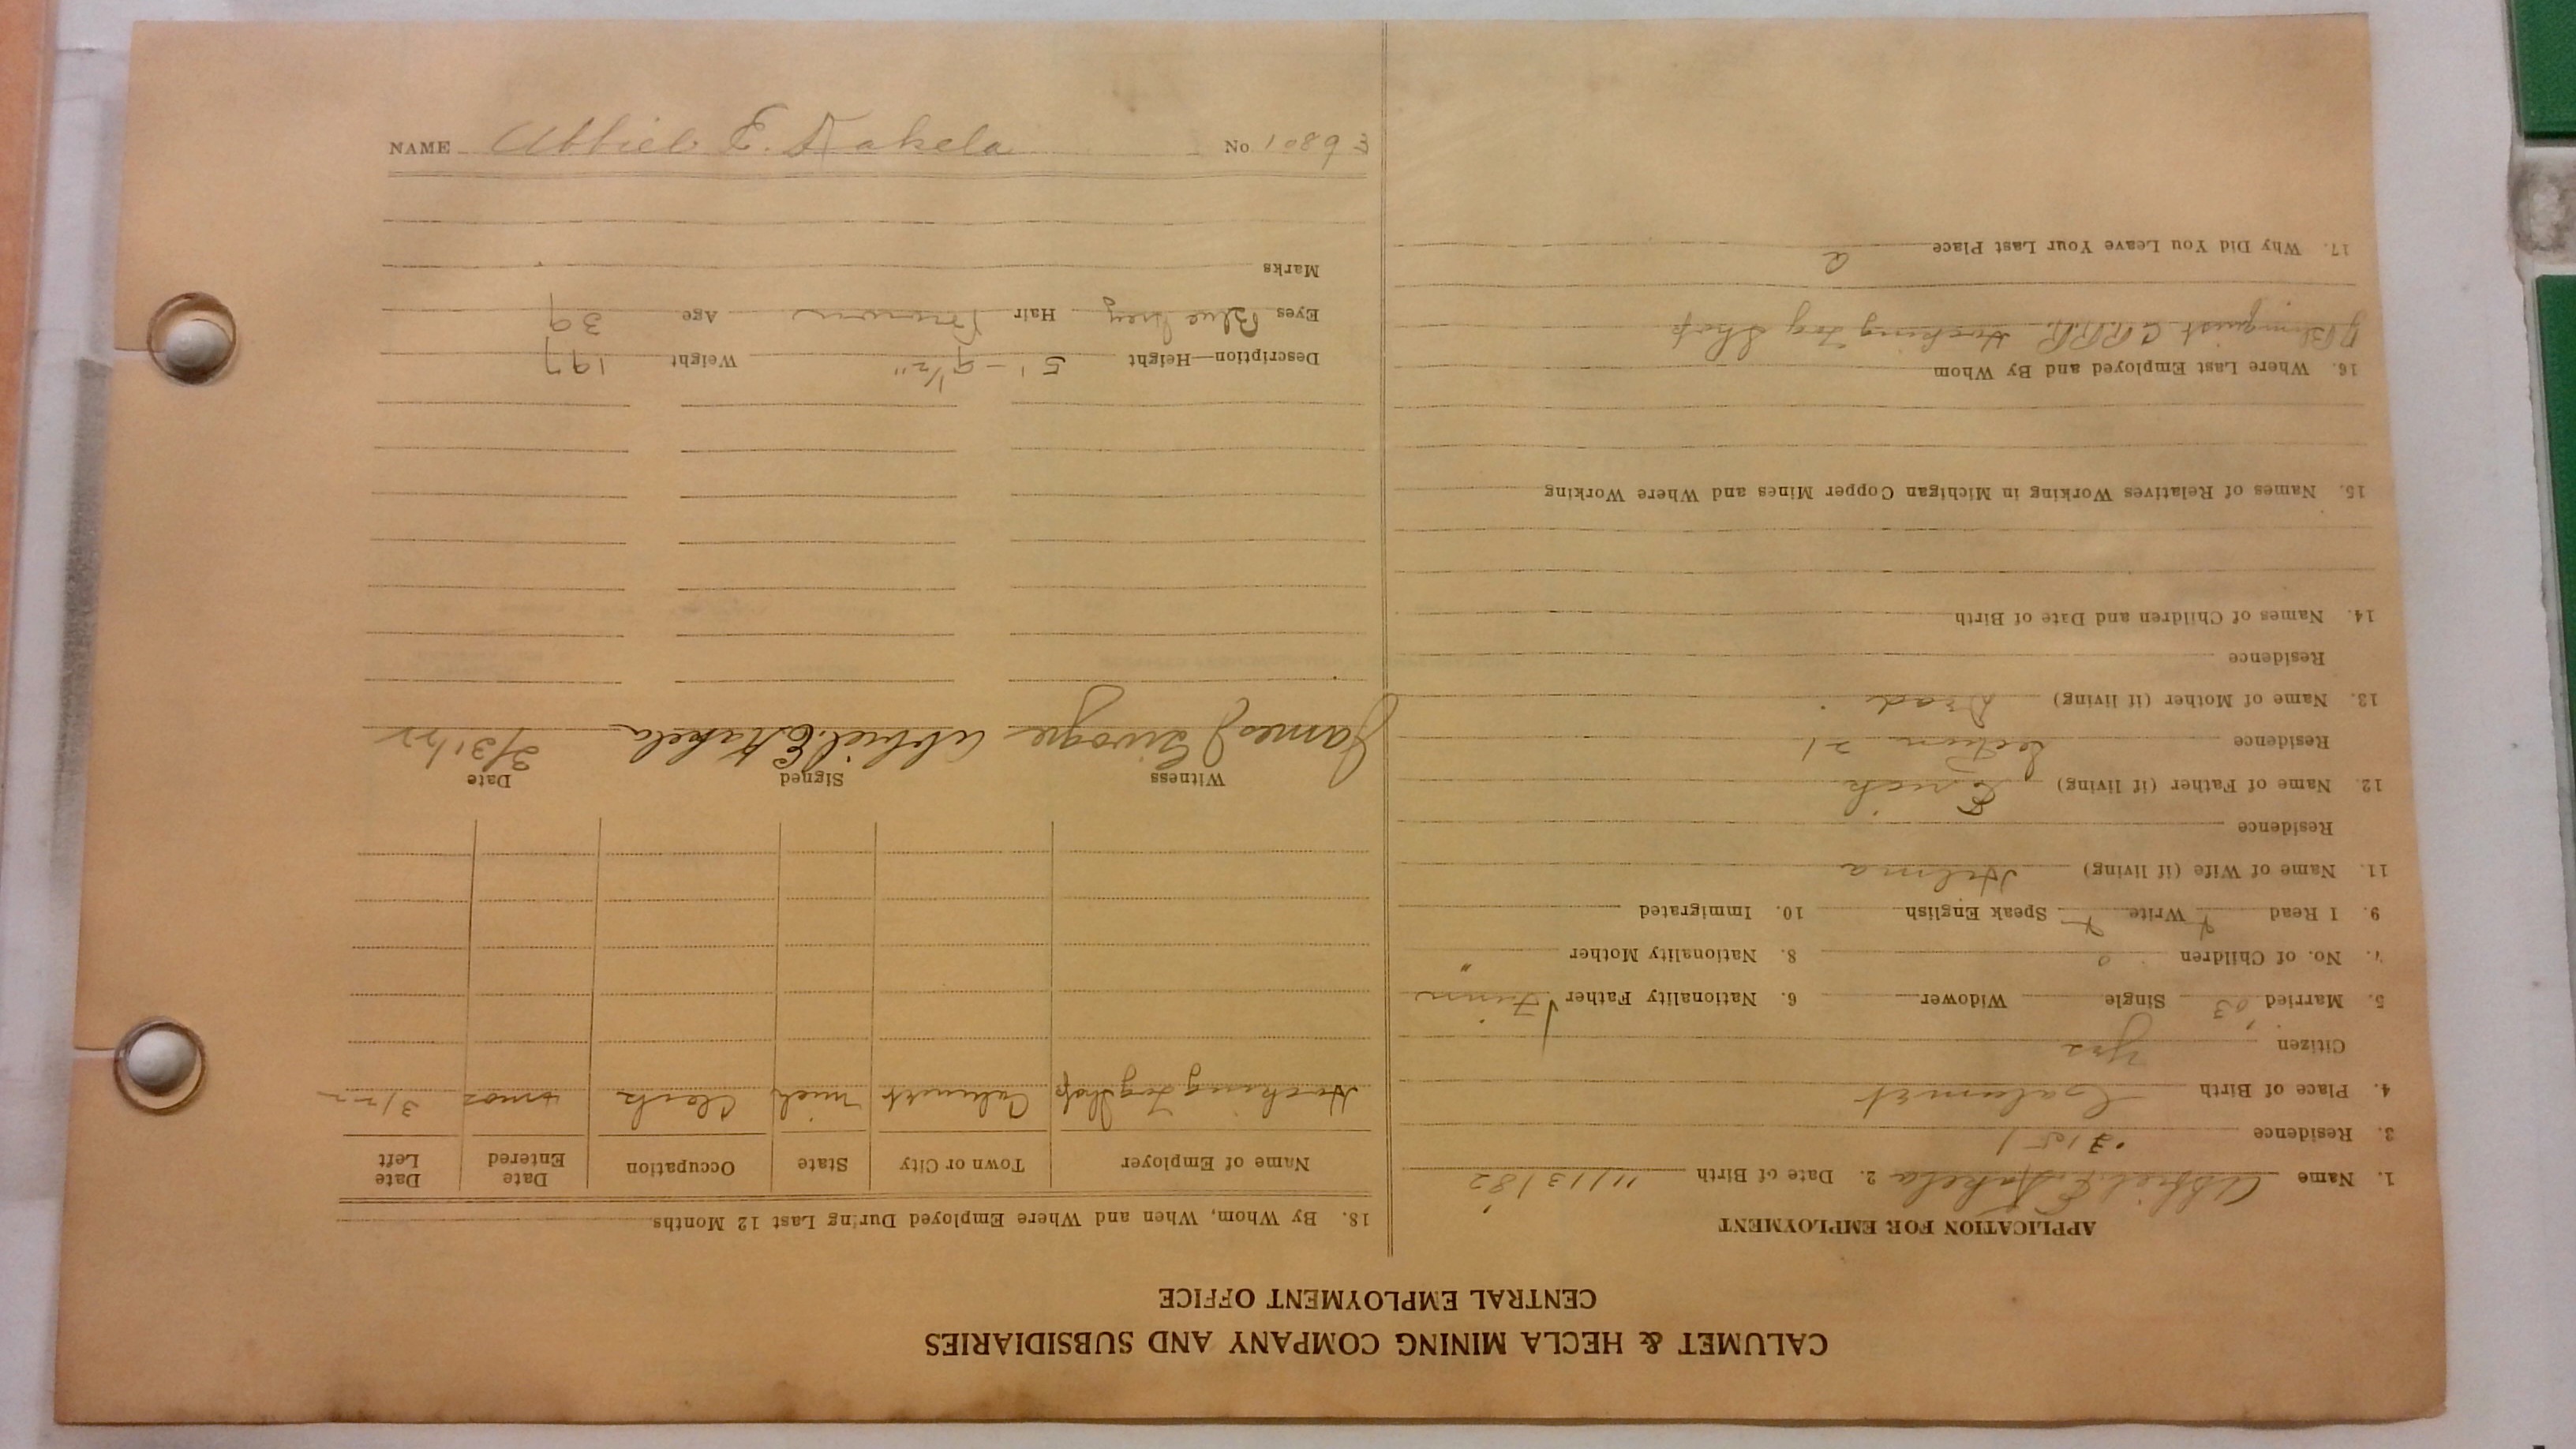 CALUMET & HECLA MINING COMPANY AND SUBSIDIARIES
CENTRAL EMPLOYMENT OFFICE
APPLICATION FOR EMPLOYMENT
1. Name Abbiel E. Kakela 2. Date of Birth 11/13/82
3. Residence
4. Place of Birth Calumet
Citizen Yes
5. Married '03 Single Widower 6. Nationality Father Finn
7. No. of Children 0 8. Nationality Mother "
9. I Read Write Speak English 10. Immigrated
11. Name of Wife (if living) Helma
Residence
12. Name of Father (if living) Erick
Residence Section 21
13. Name of Mother (if living) Dead
Residence
14. Names of Children and Date of Birth
15. Names of Relatives Working in Michigan Copper Mines and Where Working
16. Where Last Employed and By Whom
Blumquist C.R.R. Hecking Log Shop
17. Why Did You Leave Your Last Place
18. By Whom, When and Where Employed During Last 12 Months
Name of Employer Town or City State Occupation Date Entered Date Left
Log Shop Calumet Mich Clerk 4 mos 3/22
Witness Signed Date
James J Abbiel E Kakela 3/31/22
Description—Height 5' - 9 1/2" Weight 197
Eyes Blue Grey Hair Brown Age 39
Marks
NAME Abbiel E. Kakela No 10893